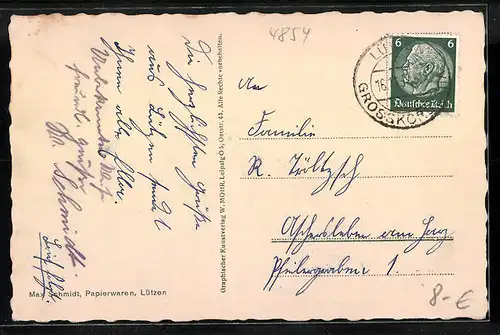 4854
Die herzlichsten Grüße
aus Lützen sendet
Ihnen allen
Unbekannter
freundl. Grüße
M. Schmidt
Graphischer Kunstverlag W. MOHR, Leipzig O 5, Oststr. 43. Alle Rechte vorbehalten.
Max Schmidt, Papierwaren, Lützen
6 6
Deutsches Reich
GROSSKOR
An
Familie
R. Töltzsch
Aschersleben am Harz
Pfeilergraben 1.
8-€